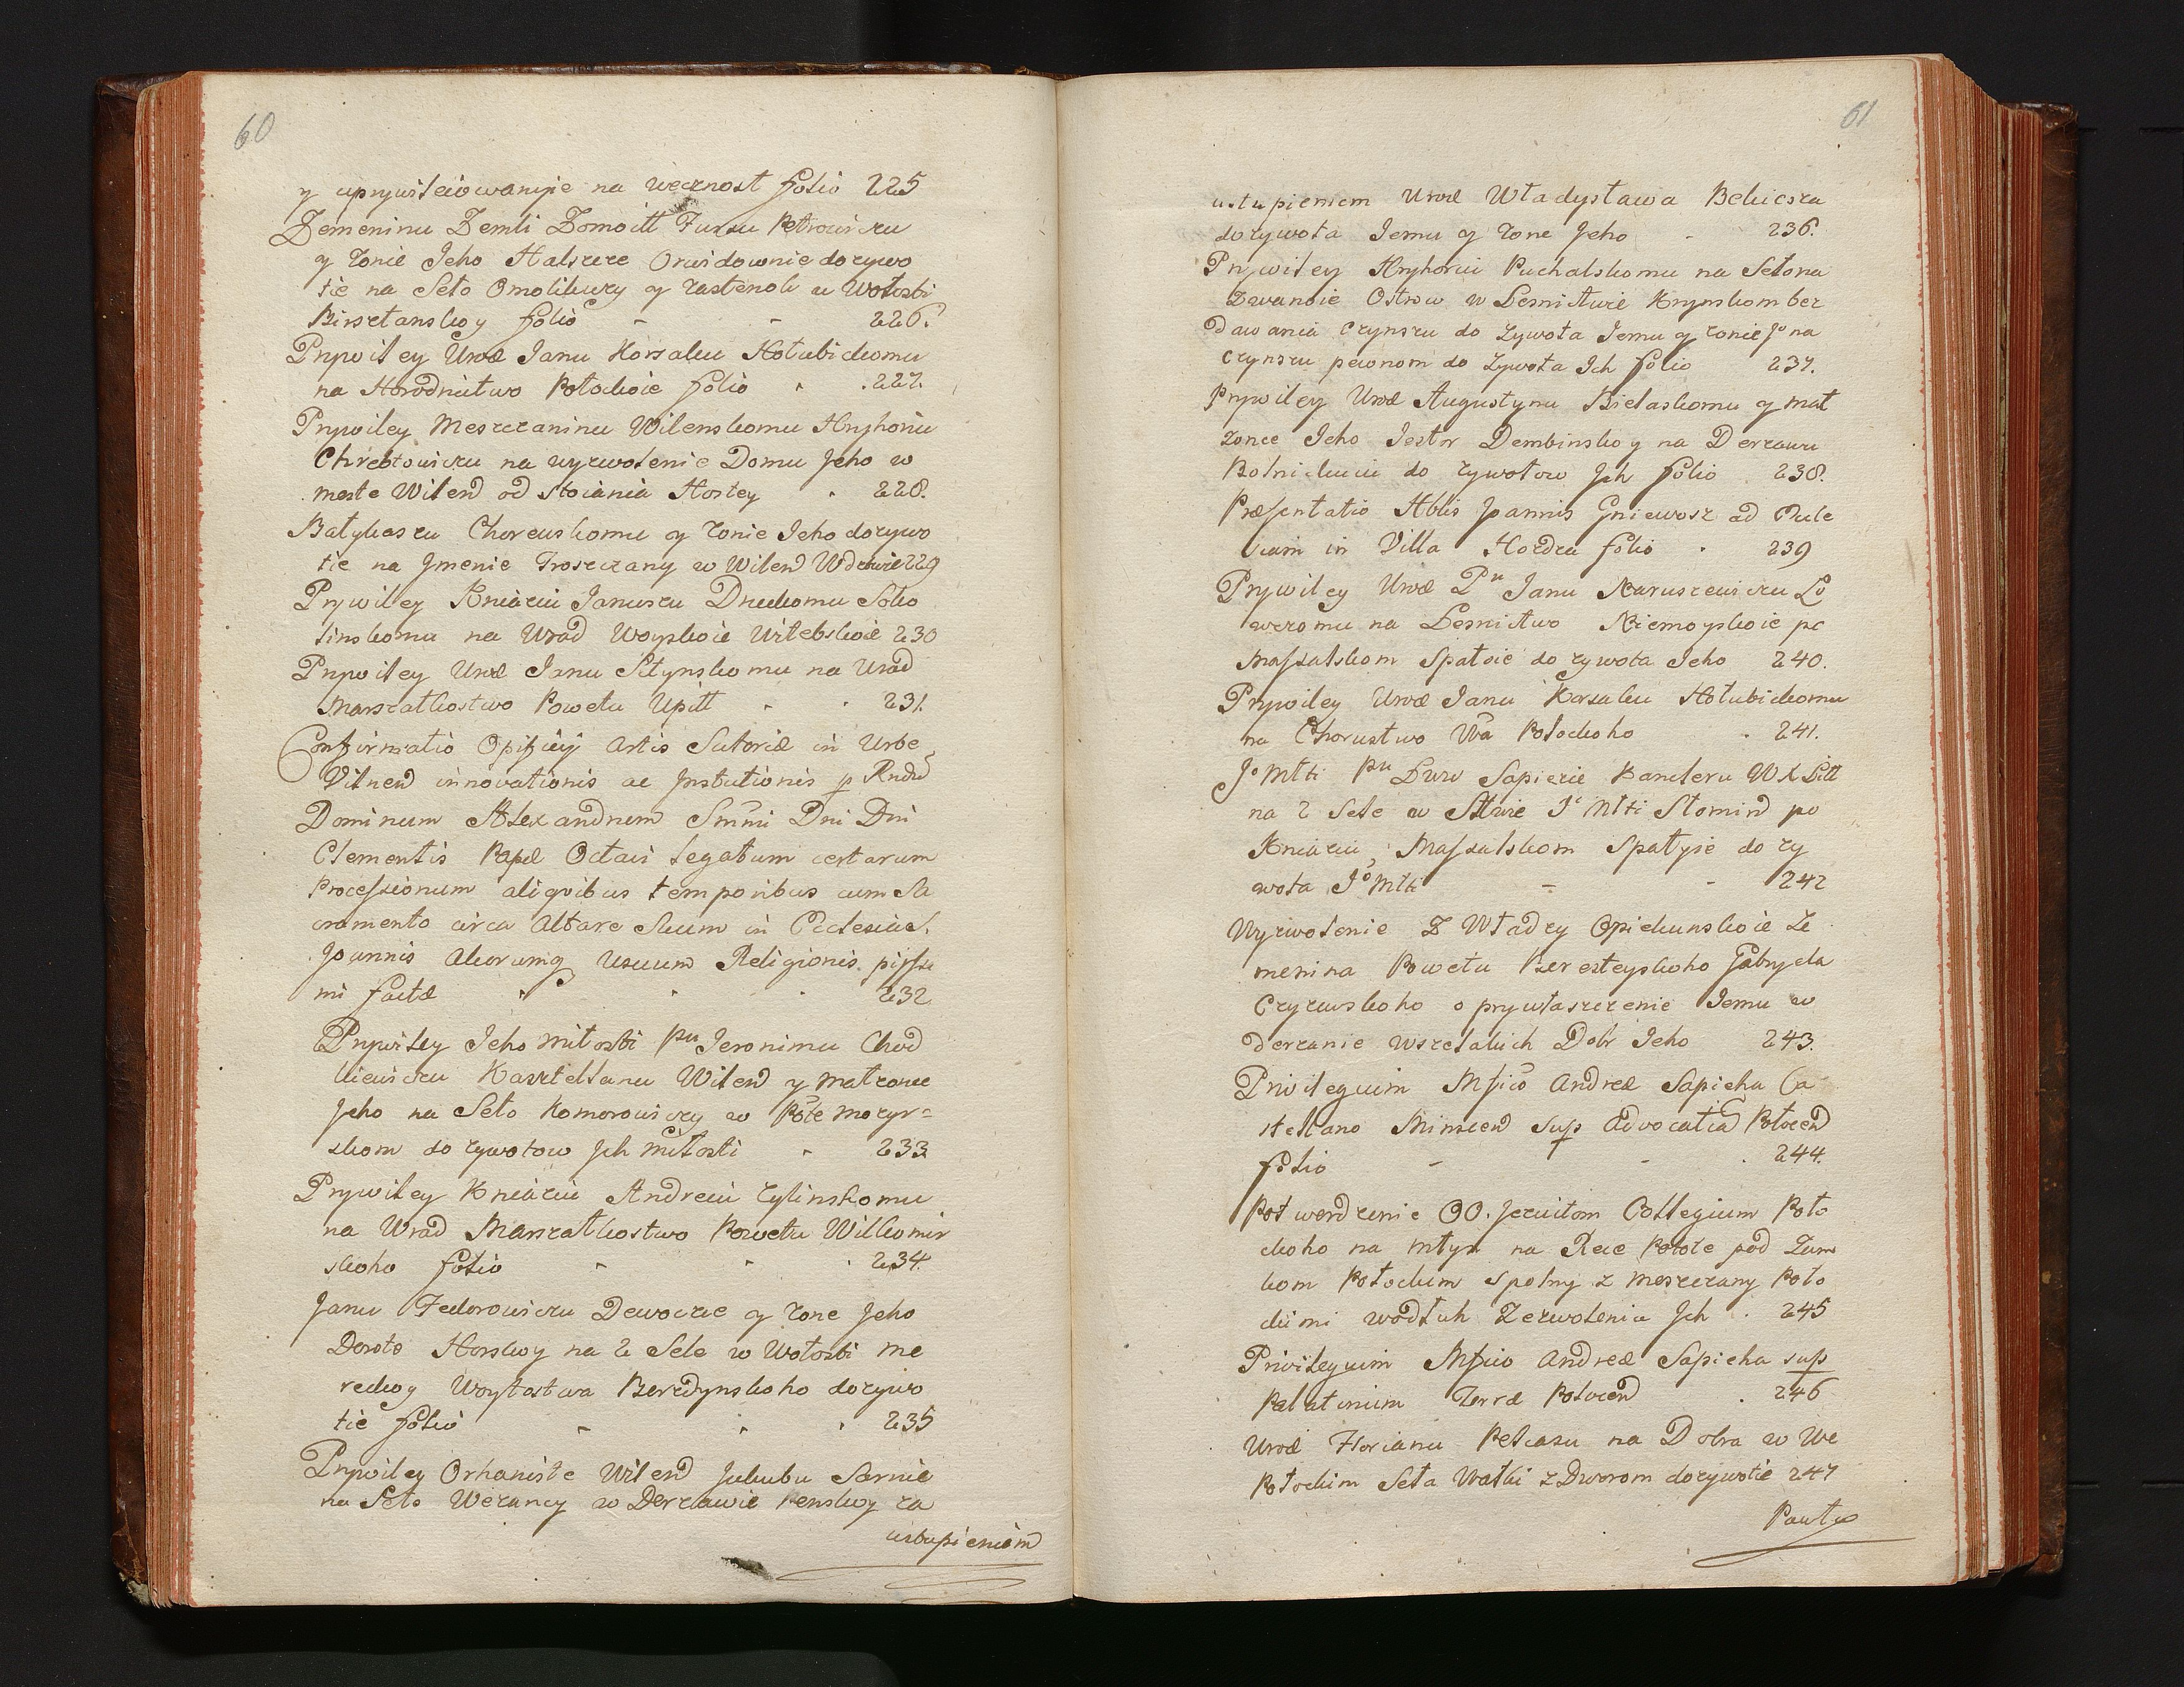 60
y uprywileiowanyie na wecznost folio 225
Zemeninu Zemli Zomoitt Fursu Petrowiczu
y Zonie Jeho Halszce Orwidownie dozywo
tie na Seło Omolikuzy y zastenok u Wołosti
Birsztanskoy folio - - 226.
Prywiley Urod Janu Korsaku Hołubickomu
na Horodnictwo Połockoie folio 227.
Prywiley Meszczaninu Wilenskomu Hryhoriu
Chrebtowiczu na wyzwolenie Domu Jeho w
meste Wilen od stoiania Hostey 228.
Batykaszu Chorewskomu y Zonie Jeho dozywo
tie na Jmenie Troszczany w Wilen 229
Prywiley Kniaziu Januszu Druckomu Soko
linskomu na Urad Woyskoie Witebskoie 230
Prywiley Urod Janu Stynskomu na Urad
Marszałkostwo Powetu Upitt 231.
Confirmatio Opificij Artis Sutoriæ in Urbe
Vilnen innovationis ac Jnstutionis p Rndu
Dominum Alexandrum Smmi Dni Dni
Clementis Papæ Octavi Legatum certarum
Processionum aliqvibus temporibus cum Sa
cramento circa Altare Suum in Ecclesia S.
Joannis Aliorumq Usuum Religionis pissi
mi factæ 232
Prywiley Jeho Miłosti Pnu Jeronimu Chod
kiewiczu Kasztellanu Wilen y Małzonce
Jeho na Seło Komorowiczy w Pote Mozyr=
skom do zywotow Jch Miłosti - 233.
Prywiley Kniaziu Andreiu Zylinskomu
na Urad Marszałkostwo Powetu Wilkomir
skoho folio 234.
Janu Fedorowiczu Dewoczce y Zone Jeho
Doroto Horskoy na 2 Sele w Wołosti Me
reckoy Woytostwa Berzdynskoho dozywo
tie folio 235
Prywiley Orhaniste Wilen Jakubu Sarnie
na Seło Wezancy w Derzawie Penskoy za
ustupieniem
61
ustupieniem Urod Władysława Bekiesza
dozywota Jemu y Zone Jeho - 236.
Prywiley Hryhoriu Puchalskomu na Seło na
Zwanoie Ostrow w Lesnictwie Krynskom bez
Dawania Czynszu do Zywota Jemu y Zonie Jo na
Czynszu pewnom do Zywota Jch folio 237.
Prywiley Urod Augustynu Bielaskomu y Mał
Zonce Jeho Jester Dembinskoy na Derzawu
Botnickuiu do zywotow Jch folio 238.
Præsentatio Hblis Joannis Gniewosz ad Ple
ciam in Villa Hozdza folio 239
Prywiley Urod Pnu Janu Naruszewiczu Lo
wczomu na Lesnictwo Niemoyskoie po
Massalskom Spałoie do zywota Jeho 240.
Prywiley Urod Janu Korsaku Hołubickomu
na Chorustwo Wa Połockoho 241.
Jo Mlti Pnu Lwu Sapiezie Kancleru WX Litt
na 2 Sele w Sttwie Jo Mlti Słomin po
Kniaziu Massalskom Spałyie do zy
wota Jo Mlti - - 242
Wyzwolenie Z Władzy Opiekunskoie Ze
menina Powetu Beresteyskoho Gabryela
Czyzewskoho o prywłaszczenie Jemu w
derzanie wszelakich Dobr Jeho 243.
Privilegium Mfico Andreæ Sapieha Ca
stellano Minscen sup Advocatia Polocen
folio - - 244.
Potwerdzenie OO. Jezuitom Collegium Poło
ckoho na Młyn na Rece Połote pod Zam
kom Połockim spolny z Meszczany Poło
ckimi wodłuh Zezwolenia Jch 245
Privilegium Mfico Andreæ Sapieha sup
Palatinum Terræ Polocen 246
Urod Florianu Petiasu na Dobra w We
Połockim Seła Watki z Dworom dozywotie 247
Pawłu